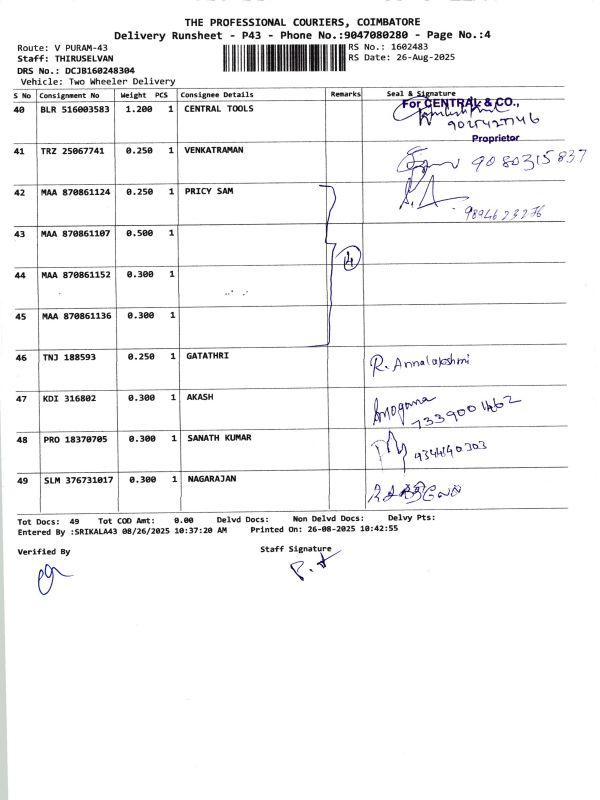 THE PROFESSIONAL COURIERS, COIMBATORE
Delivery Runsheet - P43 - Phone No.:9047080280 - Page No.:4
Route: V PURAM-43 RS No.: 1602483
Staff: THIRUSELVAN RS Date: 26-Aug-2025
DRS No.: DCJB160248304
Vehicle: Two Wheeler Delivery
S No Consignment No Weight PCS Consignee Details Remarks Seal & Signature
40 BLR 516003583 1.200 1 CENTRAL TOOLS For CENTRAL & CO.,
Proprietor
41 TRZ 25067741 0.250 1 VENKATRAMAN 9080315837
42 MAA 870861124 0.250 1 PRICY SAM
43 MAA 870861107 0.500 1
4
44 MAA 870861152 0.300 1
45 MAA 870861136 0.300 1
46 TNJ 188593 0.250 1 GATATHRI R. Annalakshmi
47 KDI 316802 0.300 1 AKASH
7339001462
48 PRO 18370705 0.300 1 SANATH KUMAR
49 SLM 376731017 0.300 1 NAGARAJAN
Tot Docs: 49 Tot COD Amt: 0.00 Delvd Docs: Non Delvd Docs: Delvy Pts:
Entered By :SRIKALA43 08/26/2025 10:37:20 AM Printed On: 26-08-2025 10:42:55
Verified By Staff Signature